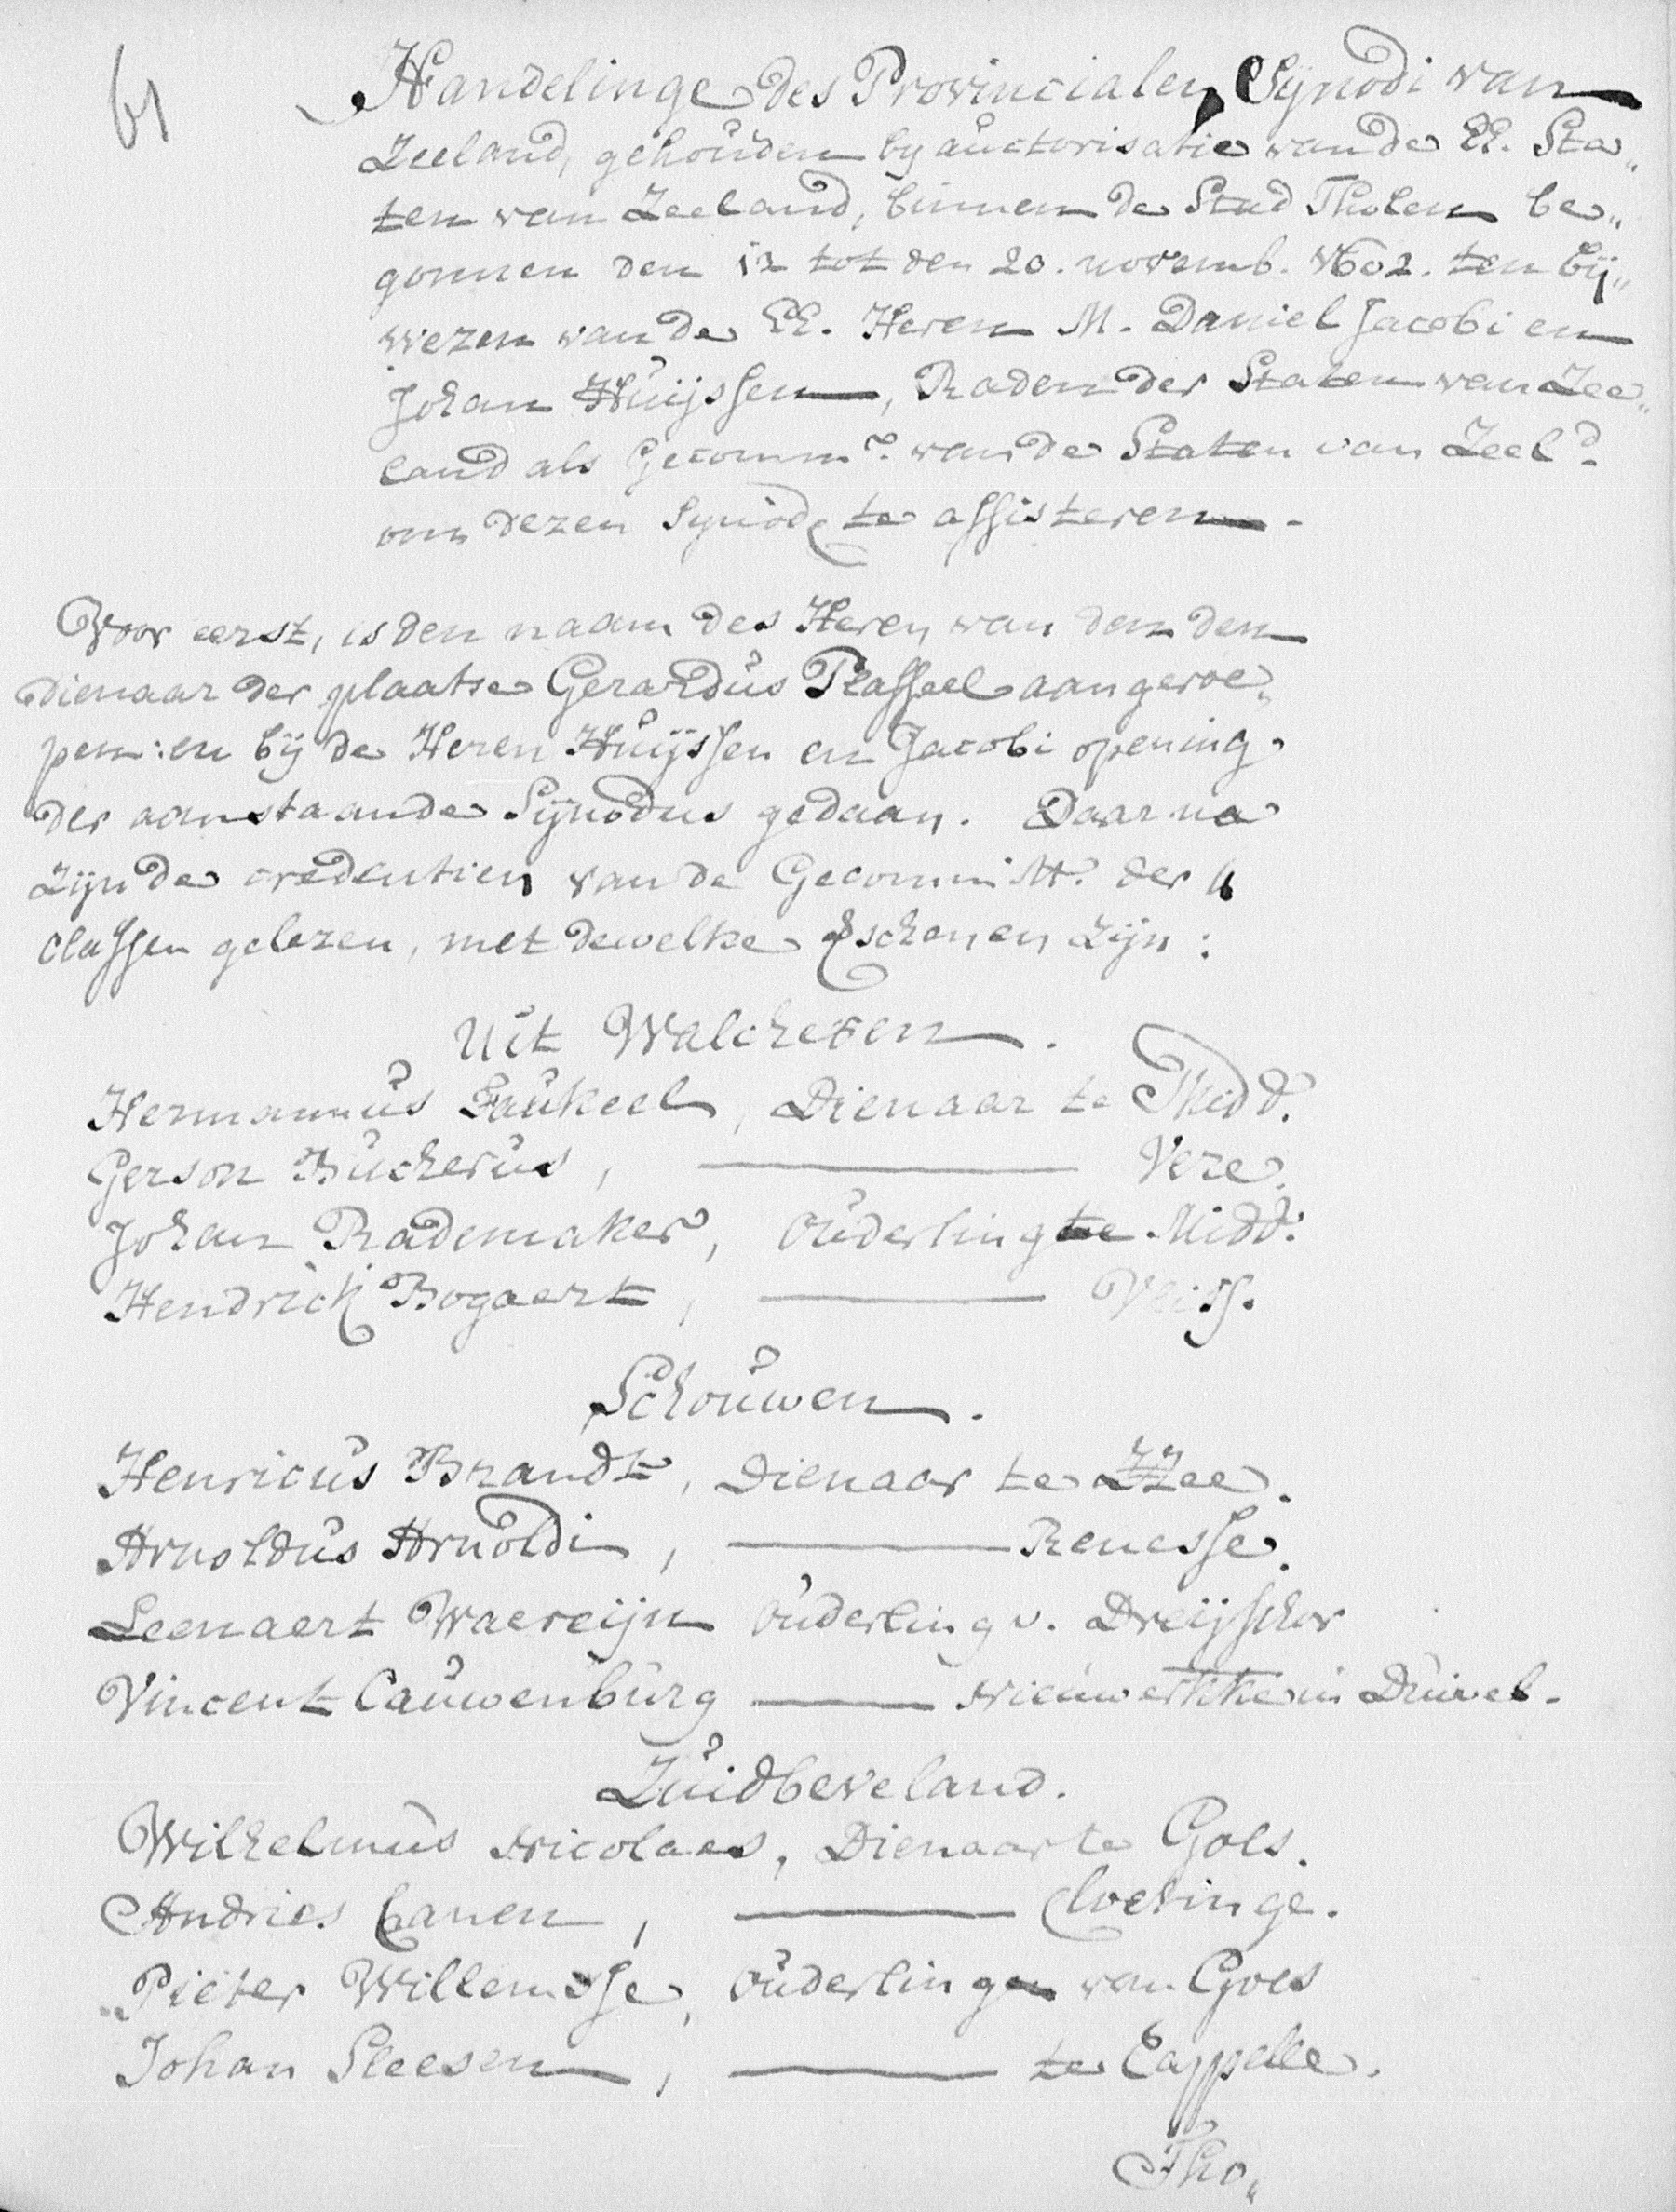 61
Handelinge des Provincialen Synodi van
Zeeland, gehouden by auctorisatie van de EE. Sta„
ten van Zeeland, binnen de Stad Tholen be„
gonnen den 12 tot den 20. novemb. 1602. ten bij„
wezen van de EE. Heren M. Daniel Jacobi en
Johan Huijssen, Raden der Staten van Zee„
land als Gecommd. van de Staten van Zeeld.
om dezen Synode te assisteren.
Voor eerst, is den naam des Heren van den
dienaar der plaatse Gerardus Rasseel aangeroe„
pen: en bij de Heren Huijssen en Jacobi opening
der aanstaande Synodus gedaan. Daar na
zijn de credentien van de Gecommitt. der 4
classen gelezen, met dewelke verschenen zijn:
Uit Walcheren.
Hermannus Faukeel, Dienaar te Midd.
Gerson Bucherus, ——— Vere.
Johan Rademaker, Ouderling te Midd.
Hendrick Bogaert, ——— Vliss.
Schouwen.
Henricus Brandt, Dienaar te ZZee.
Arnoldus Arnoldi, ——— Renesse.
Leenaert Waereijn Ouderling v. Dreijschor
Vincent Cauwenburg ——— Nieuwerkke in Duivel.
Zuidbeveland.
Wilhelmus Nicolaes, Dienaar te Goes.
Andries Canen, ——— Cloetinge.
Pieter Willemsse, Ouderlingen van Goes
Johan Sleesen, ——— te Cappelle.
Tho„